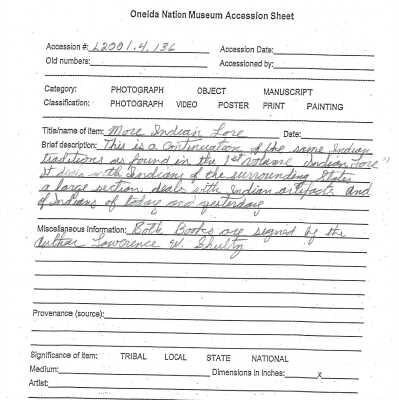 Oneida Nation Museum Accession Sheet
Accession #: L2001.4.136 Accession Date:
Old numbers: Accessioned by:
Category: PHOTOGRAPH OBJECT MANUSCRIPT
Classification: PHOTOGRAPH VIDEO POSTER PRINT PAINTING
Title/name of item: More Indian Lore Date:
Brief description: This is a continuation of the same Indian
traditions as found in the 1st volume "Indian Lore"
It deals with Indians of the surrounding States
a large section deals with Indian artifacts. and
of Indians of today and yesterday
Miscellaneous Information: Both Books are signed by the
author Lawrence W. Shultz
Provenance (source):
Significance of Item: TRIBAL LOCAL STATE NATIONAL
Medium: Dimensions in Inches: x
Artist: